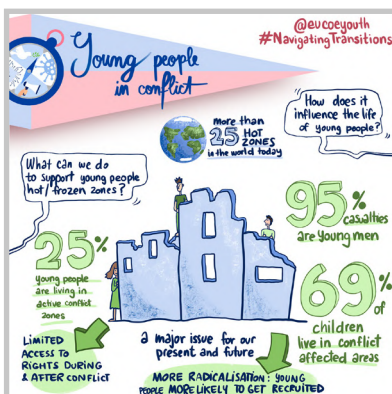 @eucoeyouth
#NavigatingTransitions
Young people
in conflict
more than
25 HOT
ZONES
in the world today
How does it
influence the life
of young people?
What can we do
to support young people
hot/frozen zones?
25%
young people
are living in
active conflict
zones
95%
casualties
are young men
69%
of
children
live in conflict
affected areas
LIMITED
ACCESS TO
RIGHTS DURING
& AFTER CONFLICT
a major issue for our
present and future
MORE RADICALISATION: YOUNG
PEOPLE MORE LIKELY TO GET RECRUITED